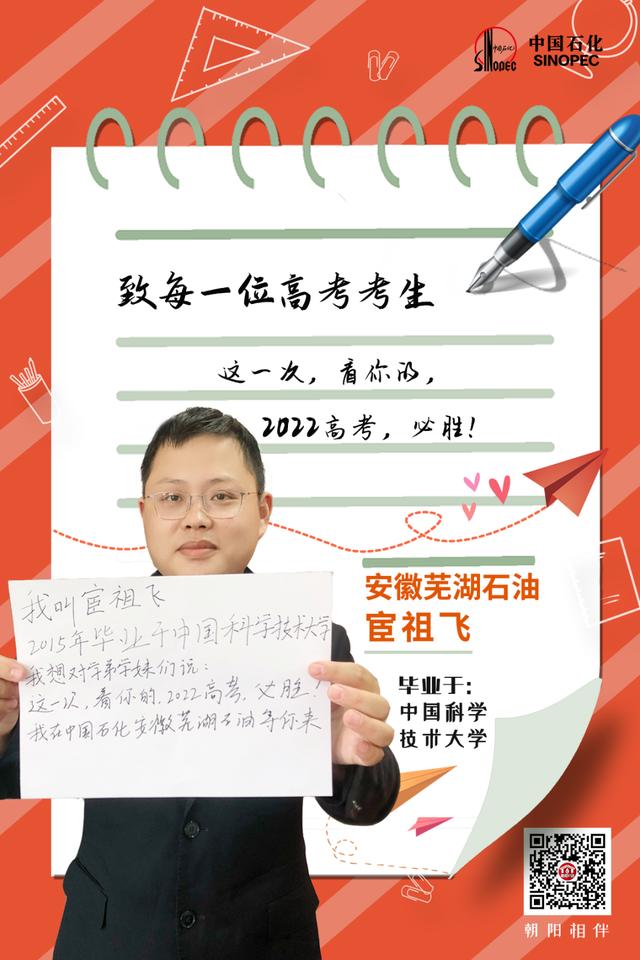 中国石化
SINOPEC
SINOPEC
致每一位高考考生
这一次，看你的，
2022高考，必胜！
安徽芜湖石油
宦祖飞
毕业于：
中国科学
技术大学
我叫宦祖飞
2015年毕业于中国科学技术大学
我想对学弟学妹们说：
这一次，看你的，2022高考，必胜！
我在中国石化安徽芜湖石油等你来
朝阳相伴